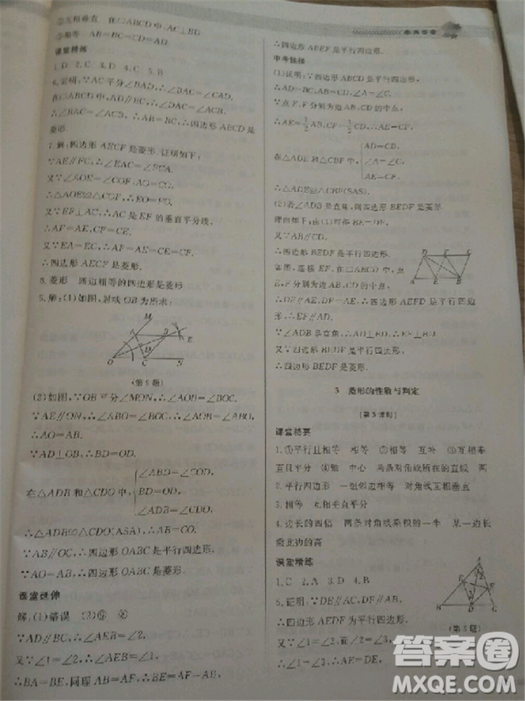 ②互相垂直 在□ABCD中,AC⊥BD
③相等 AB=BC=CD=AD
课堂精练
1.D 2.D 3.C 4.C 5.B
6.证明:∵AC平分∠BAD,∴∠BAC=∠CAD.
在□ABCD中,AD∥BC,∴∠DAC=∠ACB.
∴∠BAC=∠ACB.∴AB=BC.∴四边形ABCD是
菱形.
7.解:四边形AECF是菱形.证明如下:
∵AE∥FC,∴∠EAC=∠FCA.
又∵∠AOE=∠COF,AO=CO,
∴△AOE≌△COF.∴EO=FO.
又∵EF⊥AC,∴AC是EF的垂直平分线.
∴AF=AE,CF=CE.
又∵EA=EC,∴AF=AE=CE=CF.
∴四边形AECF是菱形.
8.菱形 四边相等的四边形是菱形
9.解:(1)如图,射线OB为所求;
(第9题)
(2)如图,∵OB平分∠MON,∴∠AOB=∠BOC.
∵AE∥ON,∴∠ABO=∠BOC.∴∠AOB=∠ABO.
∴AO=AB.
∵AD⊥OB,∴BD=OD.
在△ADB和△CDO中,
∠ABD=∠COD,
BD=OD,
∴△ADB≌△CDO(ASA),∴AB=CO.
∵AB∥OC,∴四边形OABC是平行四边形.
∵AO=AB,∴四边形OABC是菱形.
课堂延伸
解:(1)错误 (2)
∵AD∥BC,∴∠AEB=∠2.
又∵∠1=∠2,∴∠AEB=∠1,
∴BA=BE,同理AB=AF,∴BE=AF.
∴四边形ABEF是平行四边形.
中考链接
(1)证明:∵四边形ABCD是平行四边形,
∴AD=BC,AB=CD,∠A=∠C.
∵点E,F分别为边AB,CD的中点,
∴AE=1/2AB,CF=1/2CD,∴AE=CF.
在△ADE和△CBF中,
AD=CB,
∠A=∠C,
AE=CF,
∴△ADE≌△CBF(SAS).
(2)若∠ADB是直角,则四边形BEDF是菱形.
理由如下:由(1)可得BE=DF.
又∵AB∥CD,
∴四边形BEDF是平行四边形.
如图,连接EF,在□ABCD中,点
E,F分别为边AB,CD的中点,
∴DF∥AE,DF=AE.∴四边形AEFD是平行四边
形,∴EF∥AD.
∵∠ADB是直角,∴AD⊥BD.∴EF⊥BD.
又∵四边形BEDF是平行四边形,
∴四边形BEDF是菱形.
3 菱形的性质与判定
(第3课时)
课堂精要
1.①平行且相等 相等 ②相等 互补 ③互相垂
直且平分 ④轴 中心 两条对角线所在的直线 两
2.平行四边形 一组邻边相等 对角线互相垂直
3.相等 互相垂直平分
4.边长的四倍 两条对角线乘积的一半 边长
乘此边的高
课堂精练
1.C 2.A 3.D 4.B
5.证明:∵DE∥AC,DF∥AB,
∴四边形AEDF为平行四边形.
(第5题)
又∵∠1=∠2,而∠2=∠3,
∴∠1=∠3.∴AE=DE,
答案圈
MXQE.COM